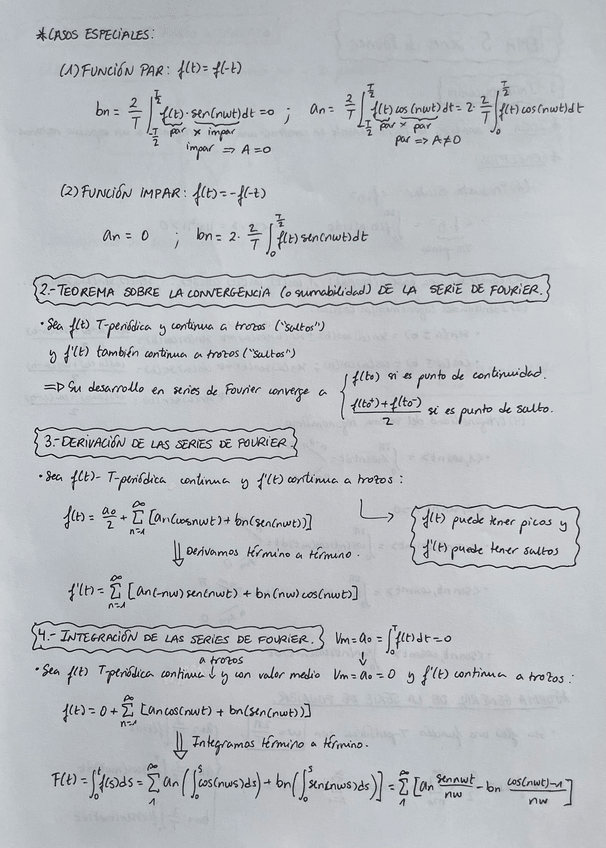 *CASOS ESPECIALES:
(1) FUNCIÓN PAR: f(t) = f(-t)
bn = 2/T ∫_{-T/2}^{T/2} f(t)·sen(nωt)dt = 0 ; an = 2/T ∫_{-T/2}^{T/2} f(t) cos(nωt)dt = 2· 2/T ∫_0^{T/2} f(t) cos(nωt)dt
par x impar par x par
impar => A=0 par => A≠0
(2) FUNCIÓN IMPAR: f(t) = -f(-t)
an = 0 ; bn = 2· 2/T ∫_0^{T/2} f(t) sen(nωt)dt
2.- TEOREMA SOBRE LA CONVERGENCIA (o sumabilidad) DE LA SERIE DE FOURIER.
· Sea f(t) T-periódica y continua a trozos ("saltos")
y f'(t) también continua a trozos ("saltos")
=> Su desarrollo en series de Fourier converge a { f(to) si es punto de continuidad.
(f(to⁺)+f(to⁻))/2 si es punto de salto.
3.- DERIVACIÓN DE LAS SERIES DE FOURIER.
· Sea f(t)- T-periódica continua y f'(t) continua a trozos:
f(t) = ao/2 + ∑_{n=1}^∞ [an(cosnωt) + bn(sen(nωt))]
f(t) puede tener picos y
f'(t) puede tener saltos
⇓ Derivamos término a término.
f'(t) = ∑_{n=1}^∞ [an(-nω) sen(nωt) + bn(nω) cos(nωt)]
4.- INTEGRACIÓN DE LAS SERIES DE FOURIER. Vm = ao = ∫_0^T f(t)dt = 0
a trozos
· Sea f(t) T-periódica continua ↓ y con valor medio Vm = ao = 0 y f'(t) continua a trozos:
f(t) = 0 + ∑_{n=1}^∞ [ancos(nωt) + bn(sen(nωt))]
⇓ Integramos término a término.
F(t) = ∫_0^t f(s)ds = ∑_1^∞ an(∫_0^s cos(nωs)ds) + bn(∫_0^s sen(nωs)ds)] = ∑_1^∞ [an sennωt/nω - bn (cos(nωt)-1)/nω]